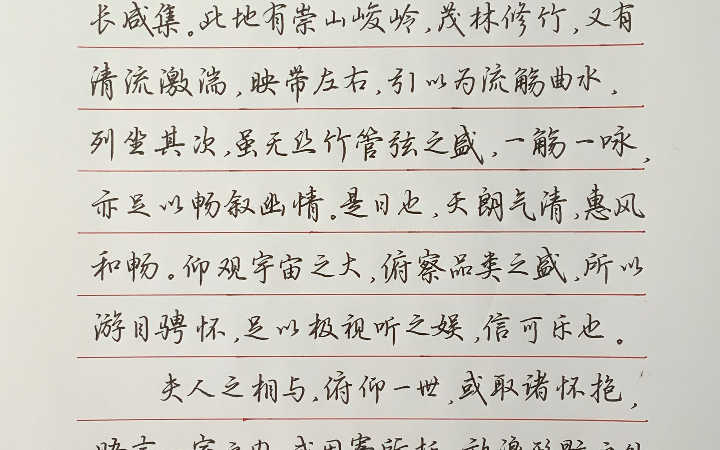 长咸集。此地有崇山峻岭，茂林修竹，又有
清流激湍，映带左右，引以为流觞曲水，
列坐其次，虽无丝竹管弦之盛，一觞一咏，
亦足以畅叙幽情。是日也，天朗气清，惠风
和畅。仰观宇宙之大，俯察品类之盛，所以
游目骋怀，足以极视听之娱，信可乐也。
夫人之相与，俯仰一世，或取诸怀抱，